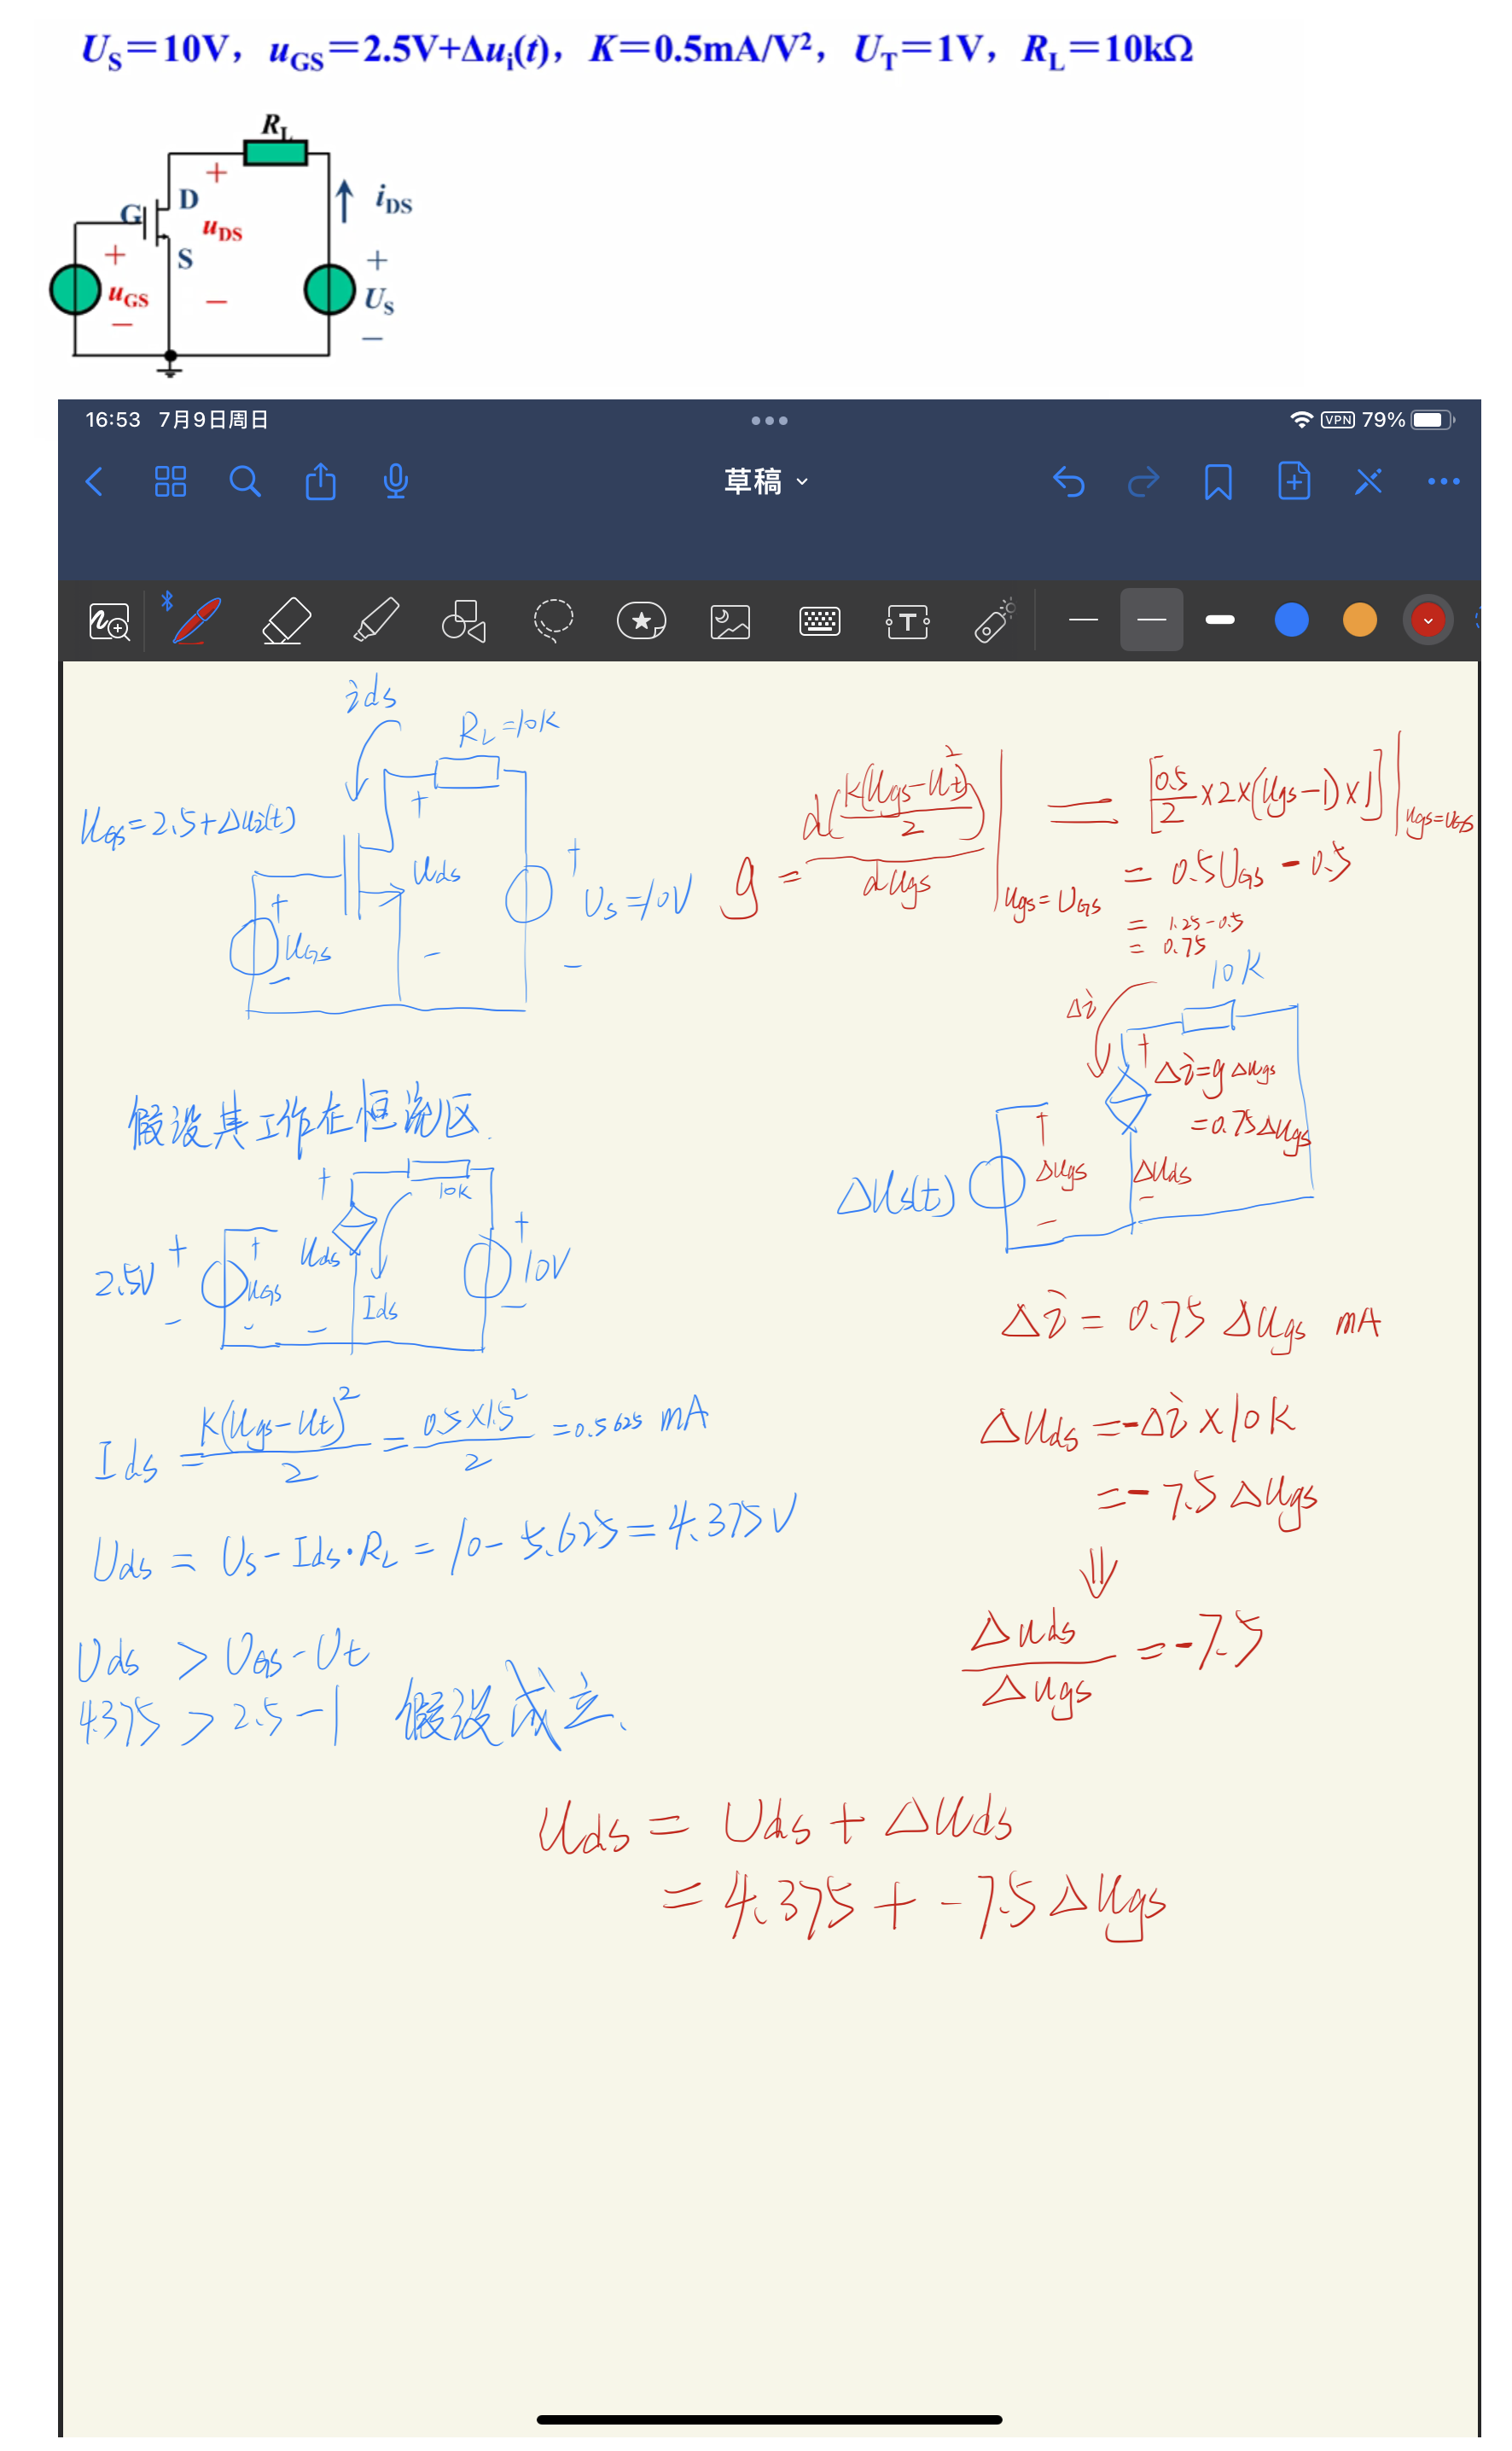 U_S=10V, u_GS=2.5V+Δu_i(t), K=0.5mA/V², U_T=1V, R_L=10kΩ
R_L
+
D
G
i_DS
u_DS
S
+
+
u_GS
U_S
−
−
−
16:53 7月9日周日
VPN 79%
草稿
T
ids
R_L=10K
U_GS=2.5+Δu_i(t)
+
+
Uds
U_S=10V
+
U_GS
−
−
−
g = d(K(Ugs-Ut)²/2)/dUgs |Ugs=U_GS = [0.5/2 ×2×(Ugs-1)×1] |Ugs=U_GS
= 0.5U_GS - 0.5
= 1.25-0.5
= 0.75
10K
Δi
+
Δi=gΔugs
=0.75Δugs
+
Δugs
Δuds
ΔUs(t)
−
−
假设其工作在恒流区.
+
10K
+
+
+
2.5V
U_GS
Uds
Ids
10V
−
−
−
−
Δi = 0.75 Δugs mA
Ids = K(Ugs-Ut)²/2 = 0.5×1.5²/2 =0.5625 mA
Δuds =-Δi×10K
=-7.5Δugs
Uds = Us-Ids·R_L = 10-5.625=4.375V
⇓
Δuds/Δugs =-7.5
Uds > U_GS-Ut
4.375 > 2.5-1 假设成立.
Uds = Uds+Δuds
= 4.375+-7.5Δugs